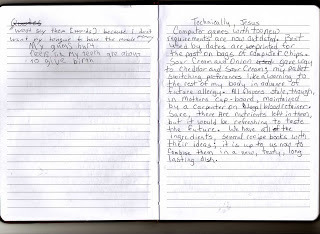 wear my (words) because I don't
want my tongue to have the made
My gums hurt
feels like my teeth are about
to give birth
Technically, Jesus
Computer games with too new
requirements are now outdated. Best
used by dates are reprinted for
the past on bags of computer chips.
Sour Cream and Onion gave way
to Cheddar and Sour Cream; my pallet
switching preferences like warning to
the rest of my body in advance of
future allergy. All flavors stale, though,
in Mothers Cup-board, maintained
by a carpenter on
Sure, there are nutrients left in them,
but it would be refreshing to taste
the future. We have all of the
ingredients, several recipe books with
their ideas; it is up to us now to
combine them in a new, tasty, long
lasting dish.